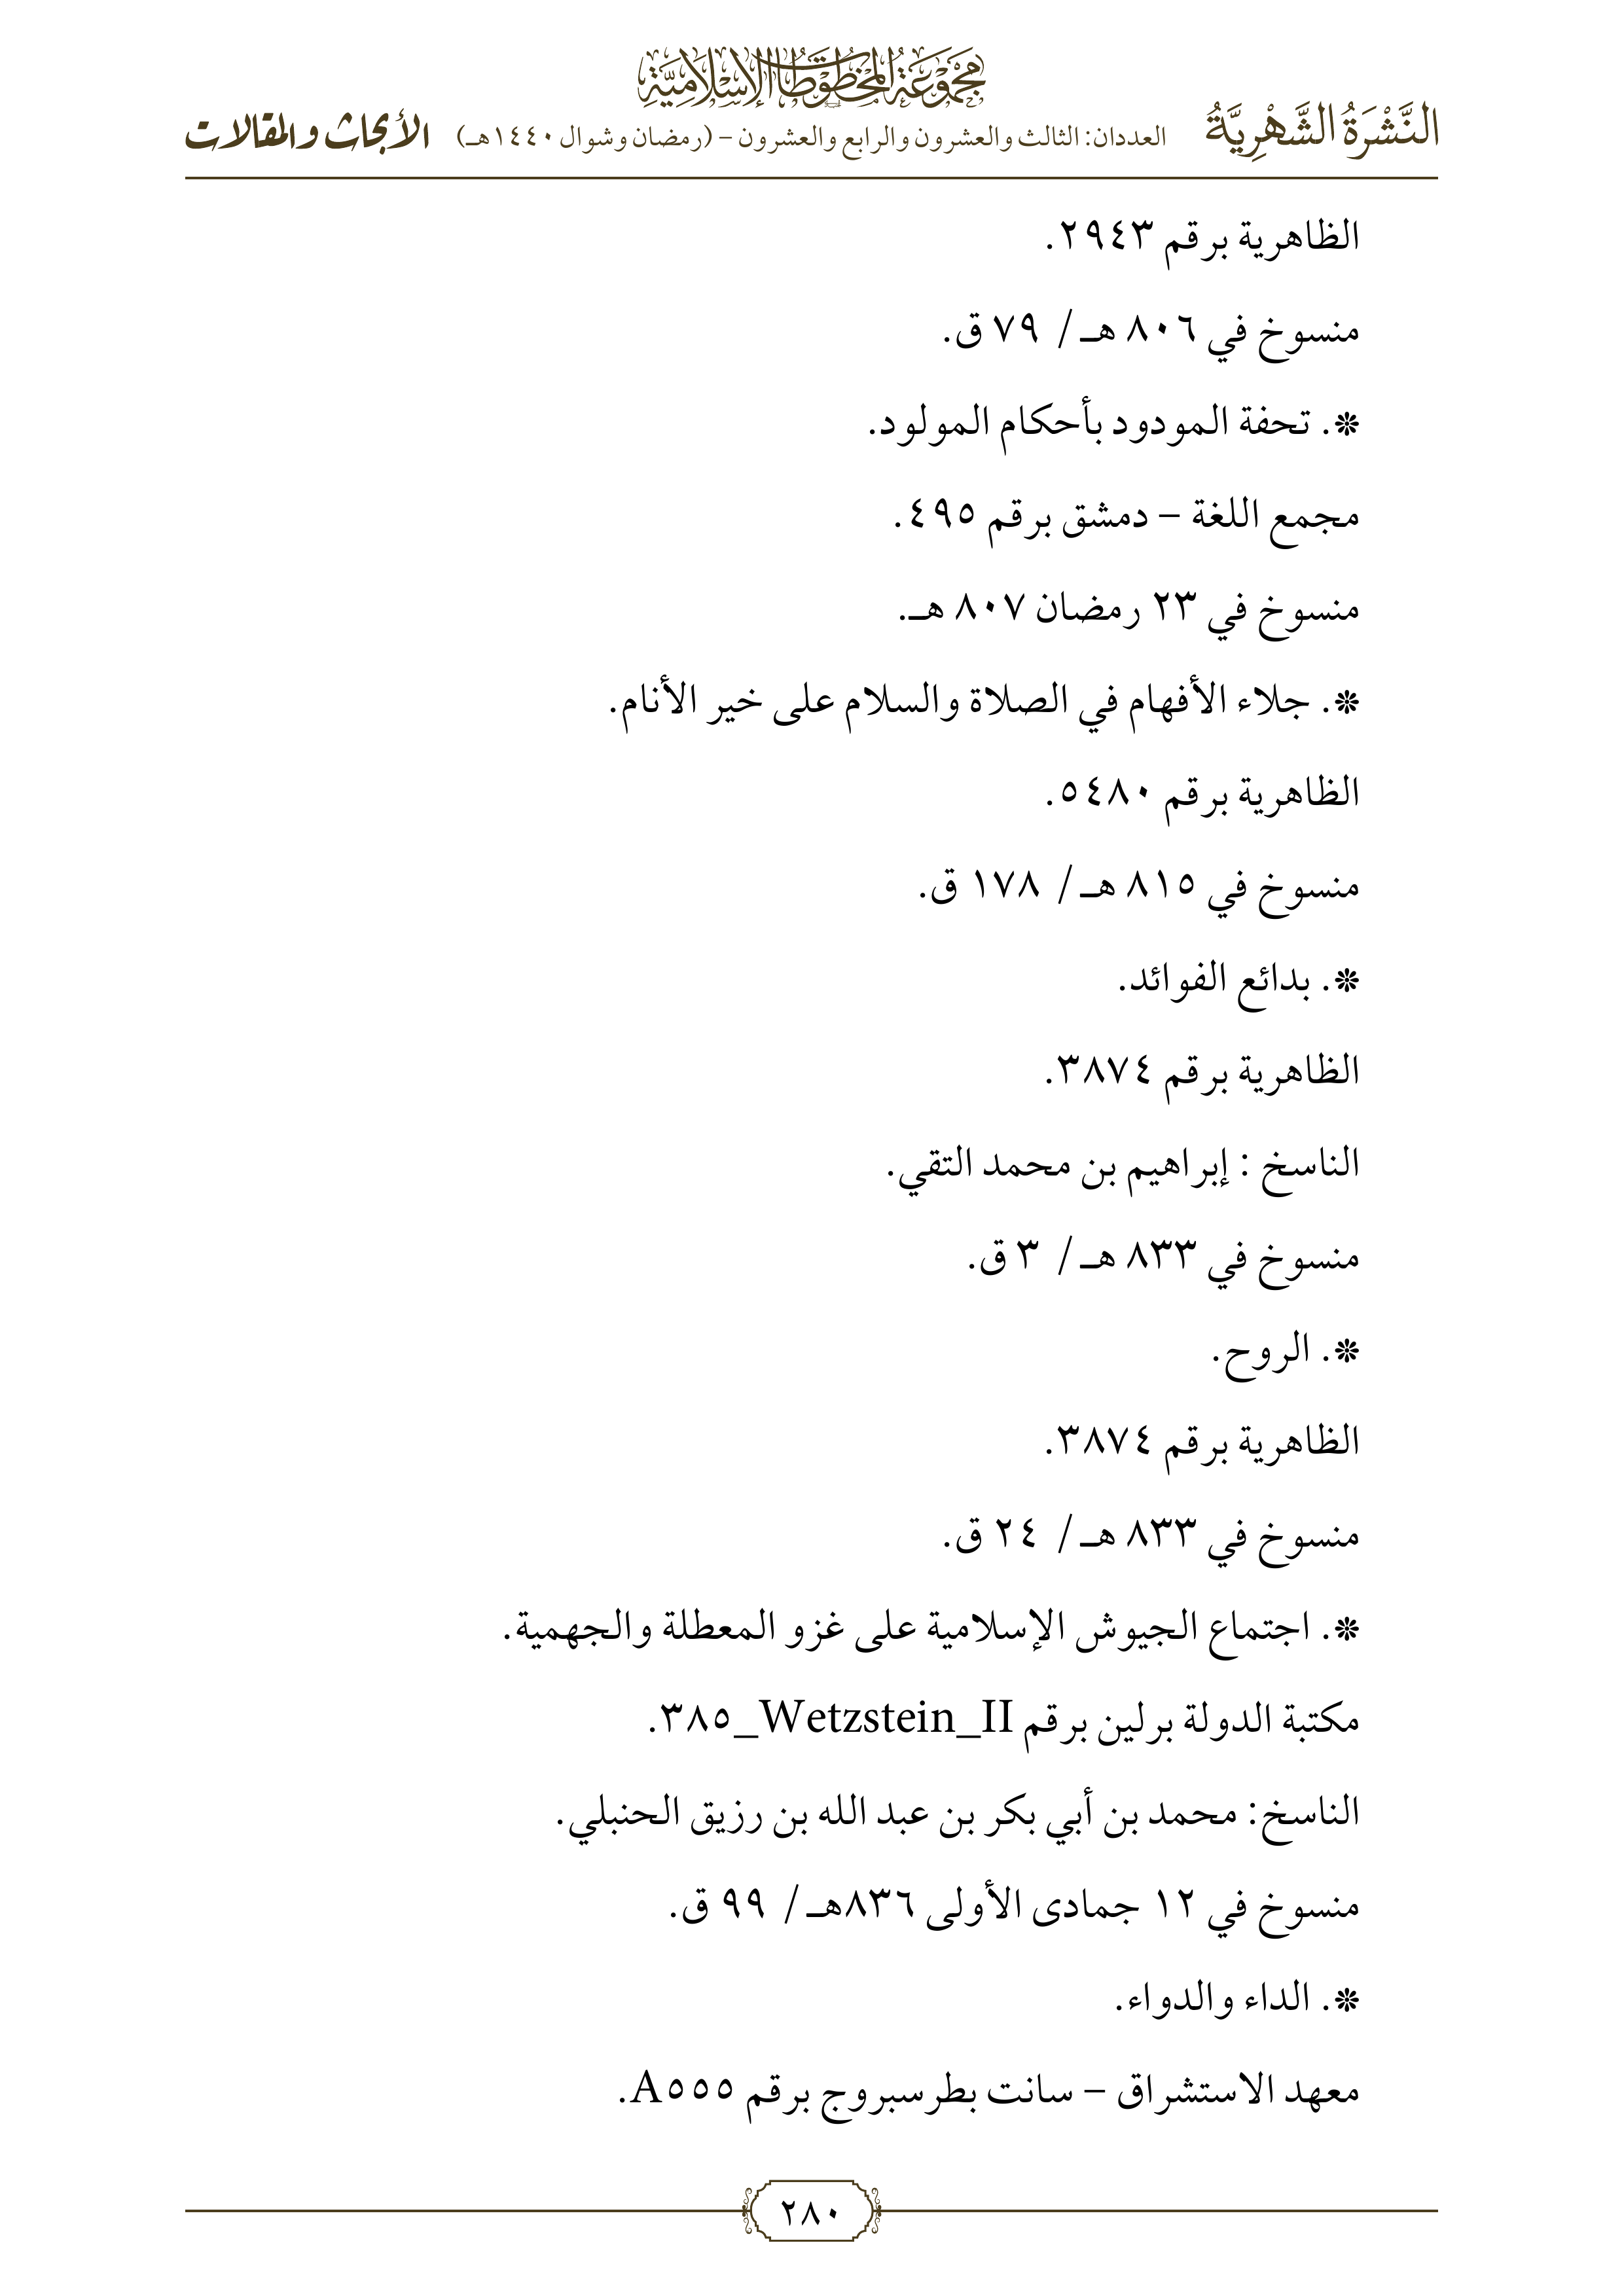 مجموعة المخطوطات الإسلامية
النَّشْرَةُ الشَّهْرِيَّةُ العددان: الثالث والعشرون والرابع والعشرون – (رمضان وشوال ١٤٤٠هـ) الأبحاث والمقالات
الظاهرية برقم ٢٩٤٣.
منسوخ في ٨٠٦ هـ/ ٧٩ ق.
❊. تحفة المودود بأحكام المولود.
مجمع اللغة – دمشق برقم ٤٩٥.
منسوخ في ٢٣ رمضان ٨٠٧ هـ.
❊. جلاء الأفهام في الصلاة والسلام على خير الأنام.
الظاهرية برقم ٥٤٨٠.
منسوخ في ٨١٥ هـ/ ١٧٨ ق.
❊. بدائع الفوائد.
الظاهرية برقم ٣٨٧٤.
الناسخ : إبراهيم بن محمد التقي.
منسوخ في ٨٣٣ هـ/ ٣ ق.
❊. الروح.
الظاهرية برقم ٣٨٧٤.
منسوخ في ٨٣٣ هـ/ ٢٤ ق.
❊. اجتماع الجيوش الإسلامية على غزو المعطلة والجهمية.
مكتبة الدولة برلين برقم Wetzstein_II_٣٨٥.
الناسخ: محمد بن أبي بكر بن عبد الله بن رزيق الحنبلي.
منسوخ في ١٢ جمادى الأولى ٨٣٦هـ/ ٩٩ ق.
❊. الداء والدواء.
معهد الاستشراق – سانت بطرسبروج برقم A٥٥٥.
٢٨٠